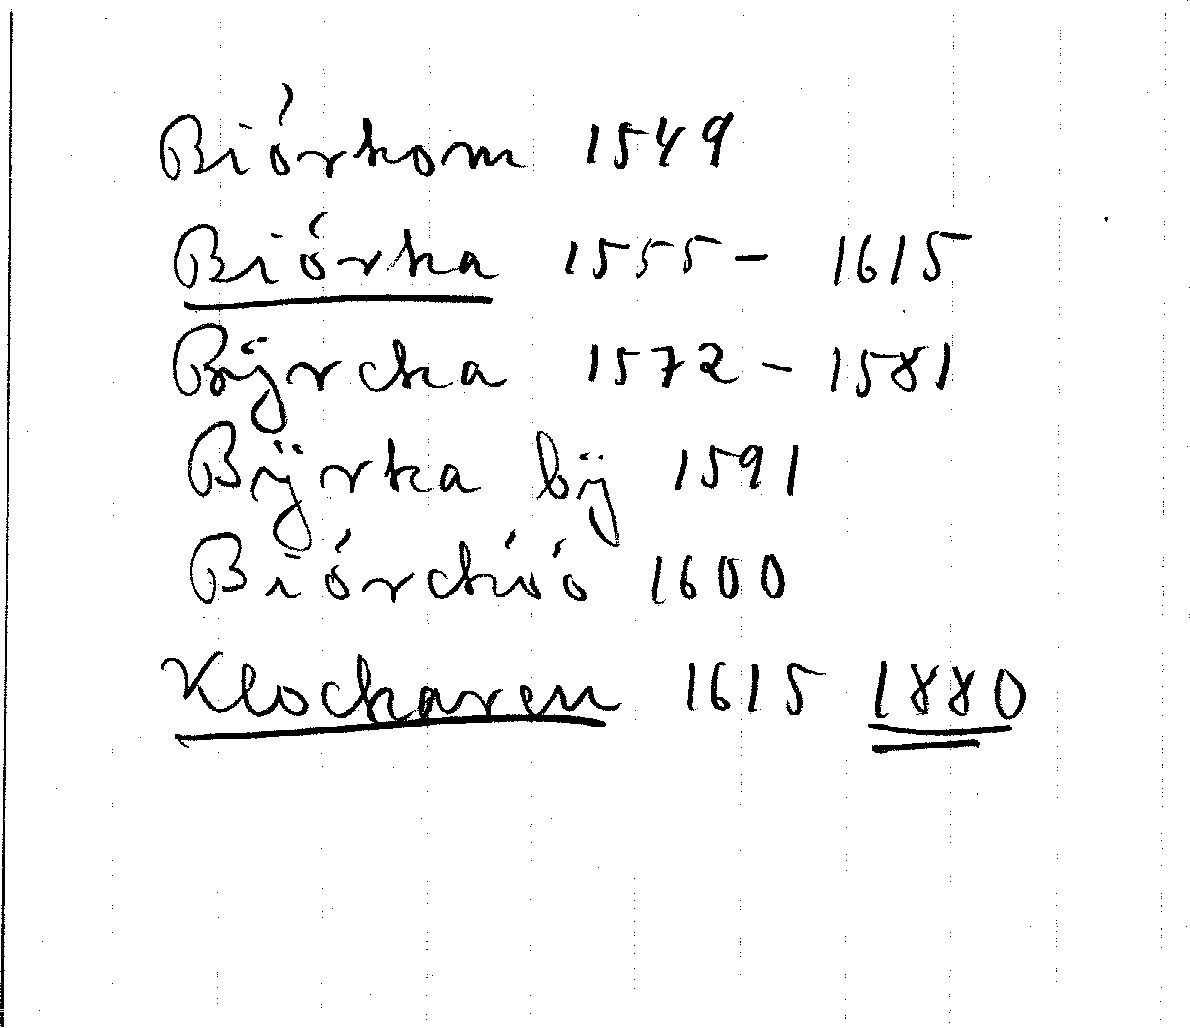 Biórkom 1549
Biórka 1555 - 1615
Bÿrcka 1572 - 1581
Bÿrka bÿ 1591
Biórckió 1600
Klockaren 1615 1880